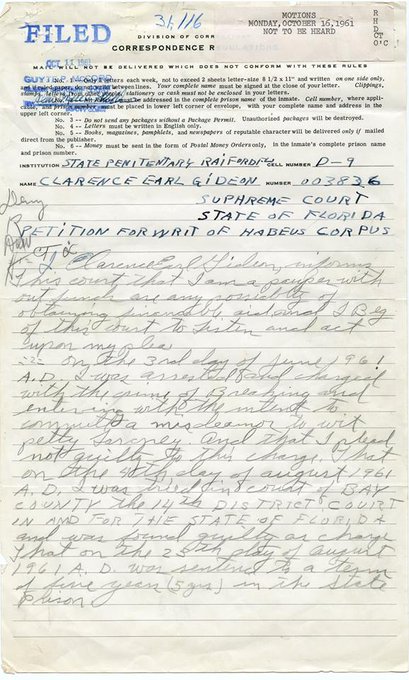 31,116
MOTIONS
MONDAY, OCTOBER 16, 1961
NOT TO BE HEARD
R
H
D
OT
O'C
FILED
DIVISION OF CORR
CORRESPONDENCE R
MAIL WILL NOT BE DELIVERED WHICH DOES NOT CONFORM WITH THESE RULES
OCT 11 1961
No. 1 - Only letters each week, not to exceed 2 sheets letter-size 8 1/2 x 11" and written on one side only,
and if ruled paper, do not write between lines. Your complete name must be signed at the close of your letter. Clippings,
stamps, letters from other people, stationery or cash must not be enclosed in your letters.
addressed in the complete prison name of the inmate. Cell number, where appli-
and prison number must be placed in lower left corner of envelope, with your complete name and address in the
upper left corner.
No. 3 - Do not send any packages without a Package Permit. Unauthorized packages will be destroyed.
No. 4 - Letters must be written in English only.
No. 5 - Books, magazines, pamphlets, and newspapers of reputable character will be delivered only if mailed
direct from the publisher.
No. 6 - Money must be sent in the form of Postal Money Orders only, in the inmate's complete prison
name and prison number.
INSTITUTION STATE PENITENTARY RAIFORD FL CELL NUMBER D-9
NAME CLARENCE EARL GIDEON NUMBER 003836
SUPREME COURT
Deny
STATE OF FLORIDA
PETITION FOR WRIT OF HABEUS CORPUS
I, Clarence Earl Gideon, informs
This court that I am a pauper with
out funds are any possibly of
obtaining financable aid and I Beg
of this court to listen and act
upon my plea
On the 3rd day of June 1961
A.D. I was arrested and charged
with the crime of Breaking and
entering with the intent to
commit a misdeamor to wit
petty larcney. And that I plead
not guilty to this charge. That
on the 4th day of august 1961
A.D. I was tried in court of BAY
COUNTY the 14th DISTRICT COURT
IN AND FOR THE STATE OF FLORIDA
and was found guilty as charge
that on the 25th day of august
1961 A.D. was sentend to a term
of five year (5 yrs) in the state
prison